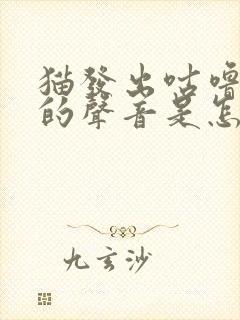 猫發出咕嚕
的聲音是怎
九玄沙